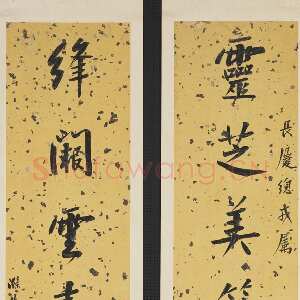 長慶總戎屬
靈芝美
絳闕雲
Shufawang.cn